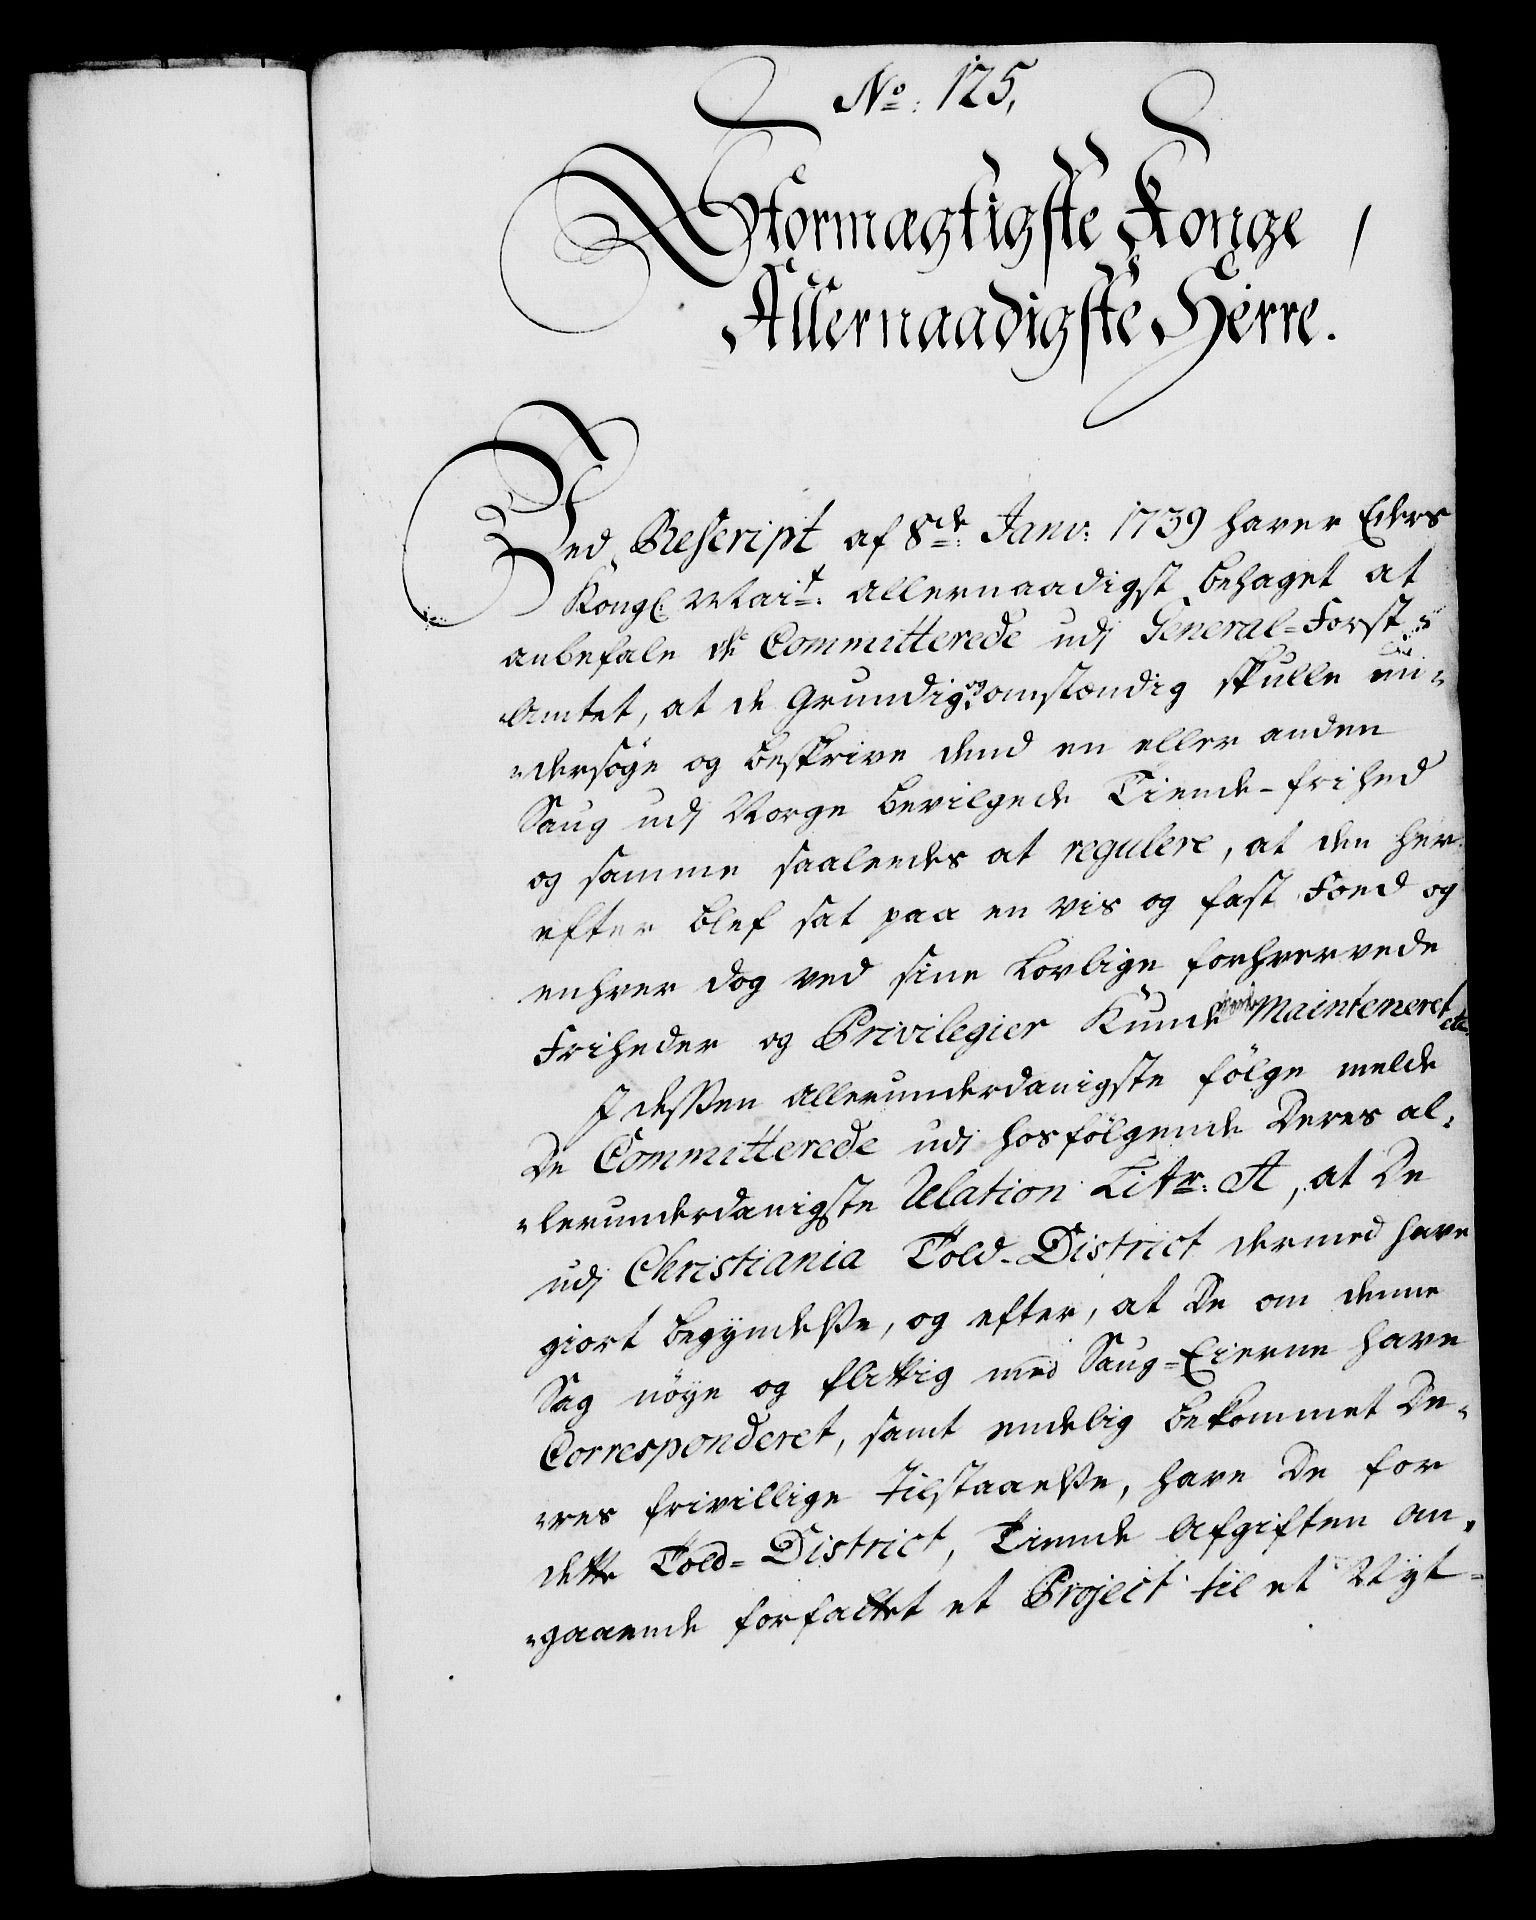 No: 125,
Stormægtigste Konge
Allernaadigste Herre.
Ved Rescript af 8de Janv: 1739 haver Eders
Kongl: Mait: allernaadigst behaget at
anbefale de Committerede udj General=Forst=
Amtet, at de grundig og omstændig skulle un=
=dersøge og beskrive dend en eller anden
Saug udj Norge bevilgede Tiende-frihed
og samme saaledes at regulere, at den her
efter blef sat paa en vis og fast Foed og
enhver dog ved sine lovlige forhvervede
Friheder og Privilegier kunde Mainteneret etc
I dessen allerunderdanigste følge melde
De Committerede udj hosfølgende Deres al=
=lerunderdanigste Relation Litr: A, at De
udj Christiania Told-District dermed have
giort begyndelsse, og efter, at De om denne
Sag nøye og flittig med Saug=Eierne have
Correspondert, samt endelig bekommet De=
=res frivillige tilstaaelsse, have De for
dette Told=District, Tiende Afgiften an=
=gaaende forfattet et Project til et Nyt=